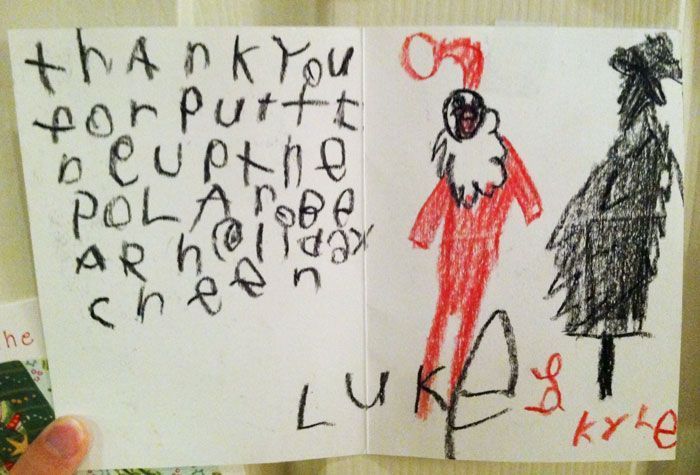 thAnKYou
for puttt
neupthe
POLAroBe
AR holiday
cheer
LUKE &
KYLE
he